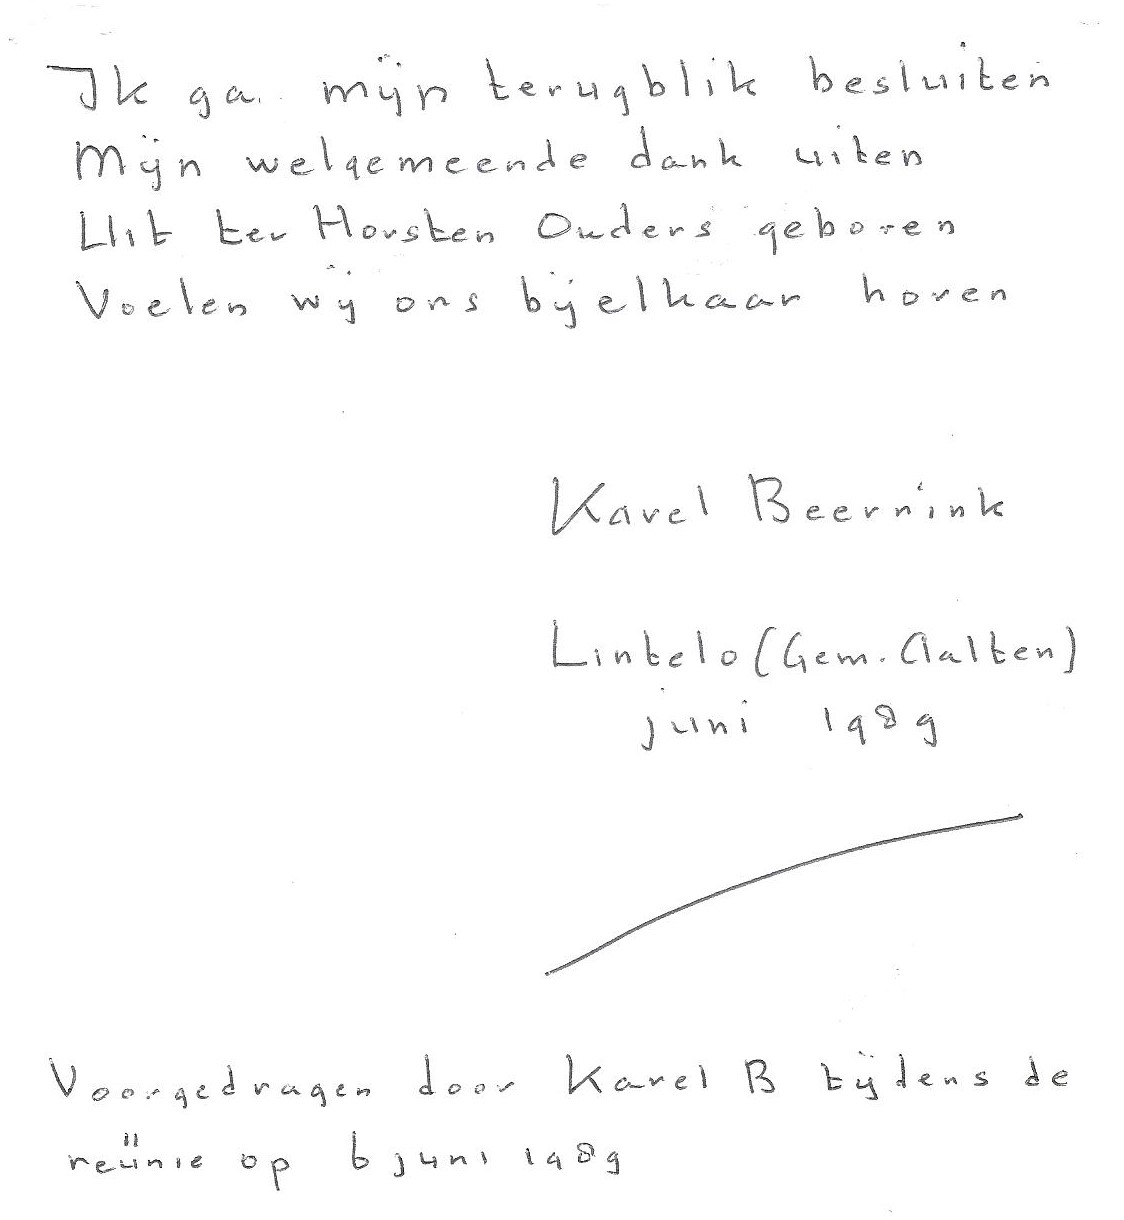 Ik ga mijn terugblik besluiten
Mijn welgemeende dank uiten
Uit ter Horsten Ouders geboren
Voelen wij ons bijelkaar horen
Karel Beernink
Lintelo (Gem. Aalten)
juni 1989
Voorgedragen door Karel B tijdens de
reünie op 6 juni 1989